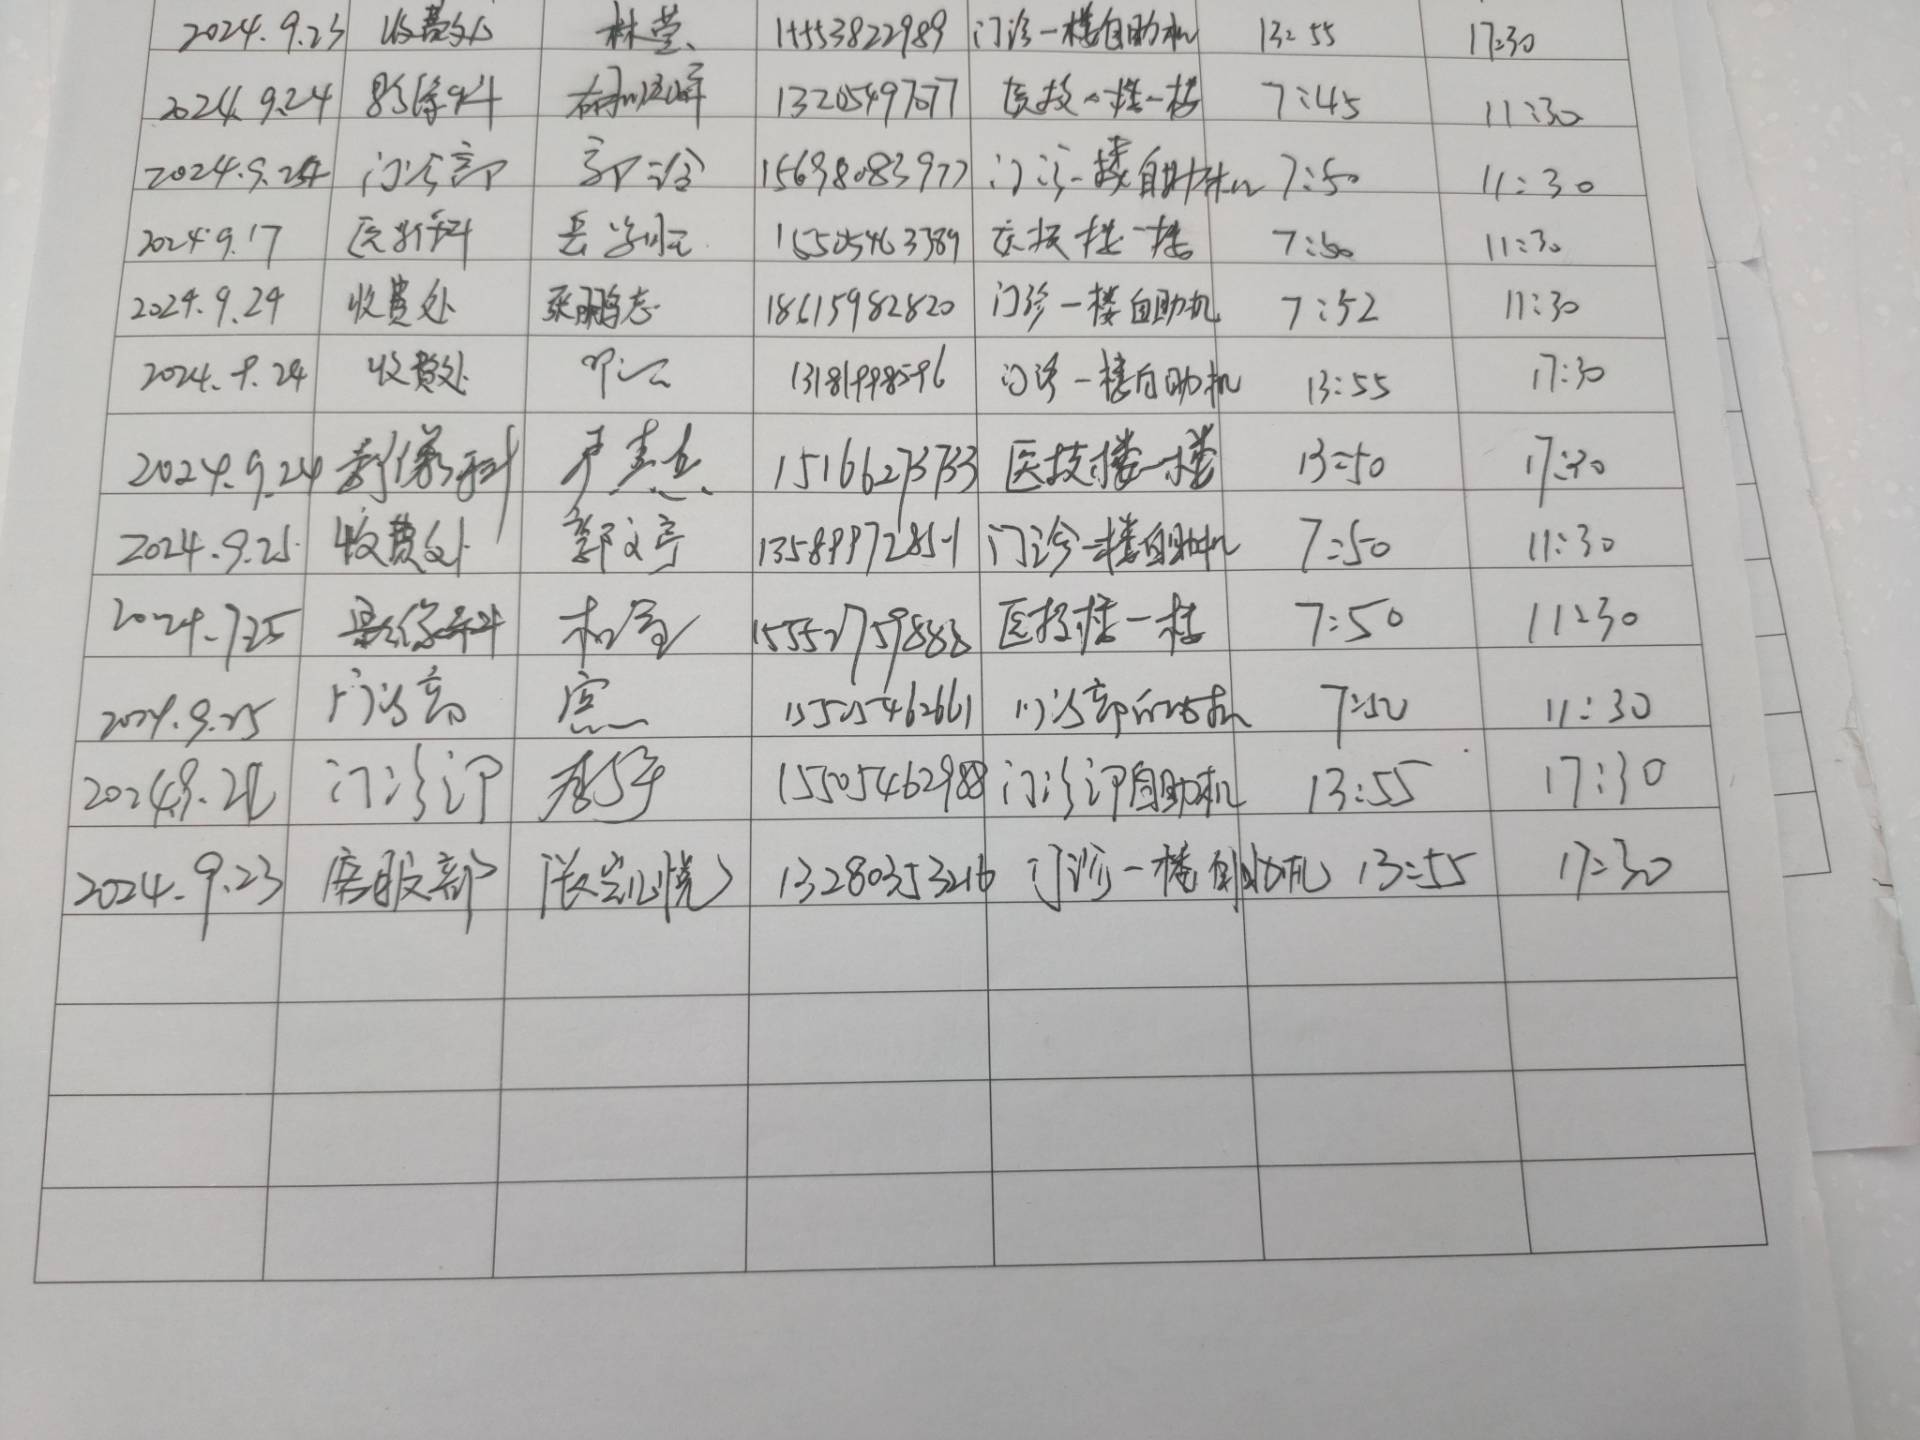 2024.9.23 收费处 林莹 15553822989 门诊一楼自助机 13:55 17:30
2024.9.24 影像科 13205497077 医技楼一楼 7:45 11:30
2024.9.24 门诊部 郭 15698083977 门诊一楼自助机 7:50 11:30
2024.9.17 15505463389 医技楼一楼 7:50 11:30
2024.9.24 收费处 张鹏志 18615982820 门诊一楼自助机 7:52 11:30
2024.9.24 收费处 13181998596 门诊一楼自助机 13:55 17:30
2024.9.24 影像科 15166273733 医技楼一楼 13:50 17:30
2024.9.25 收费处 郭文亭 13589972851 门诊一楼自助机 7:50 11:30
2024.7.25 影像科 15552759888 医技楼一楼 7:50 11:30
2024.9.25 门诊部 15505462661 门诊部自助机 7:50 11:30
门诊部 15505462988 门诊部自助机 13:55 17:30
2024.9.23 13280353216 门诊一楼自助机 13:55 17:30